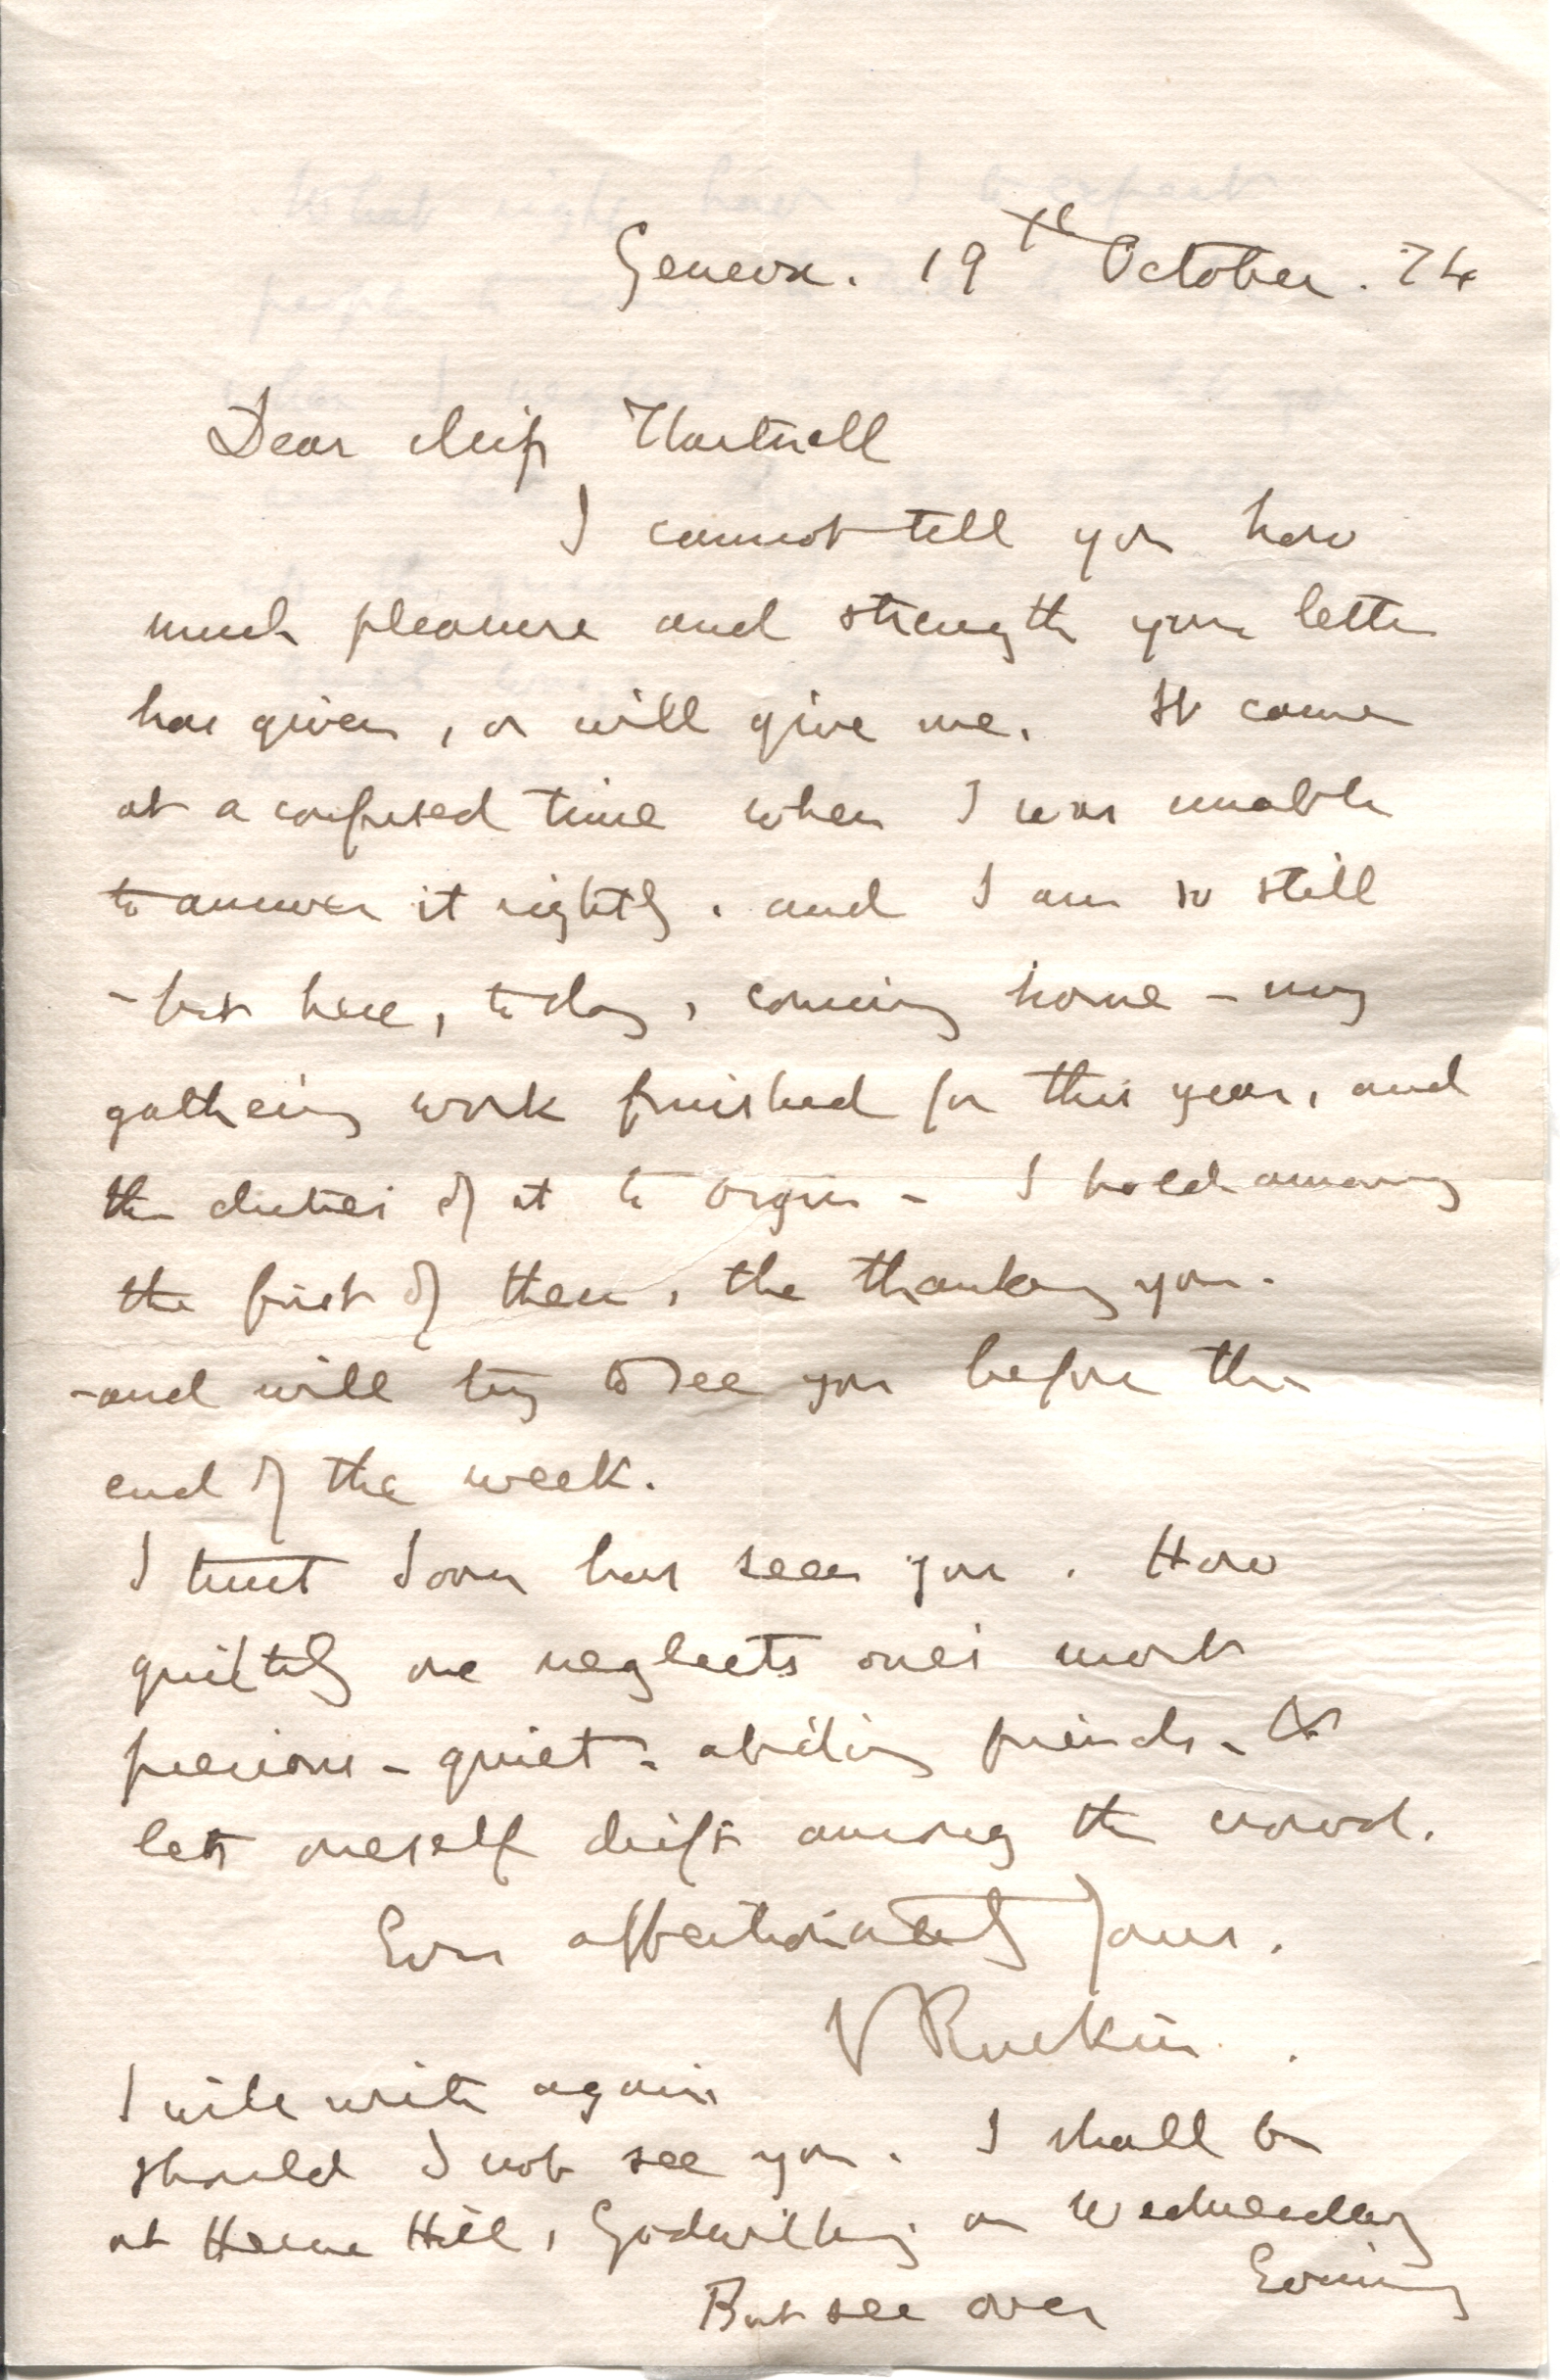 Geneva. 19th October. 74
Dear Miss Hartnell
I cannot tell you how
much pleasure and strength your letter
has given, or will give me. It came
at a confused time when I was unable
to answer it rightly. and I am so still
- but here, to day, coming home - my
gathering work finished for this year, and
the duties of it to begin - I hold among
the first of them, the thanking you.
- and will try to see you before the
end of the week.
I trust has seen you. How
guiltily one neglects one's most
precious - quiet - abiding friends - &
lets oneself drift among the crowd.
Ever affectionately Yours.
J Ruskin.
I will write again
should I not see you. I shall be
at Herne Hill, Godwilling. on Wednesday
Evening
But see over